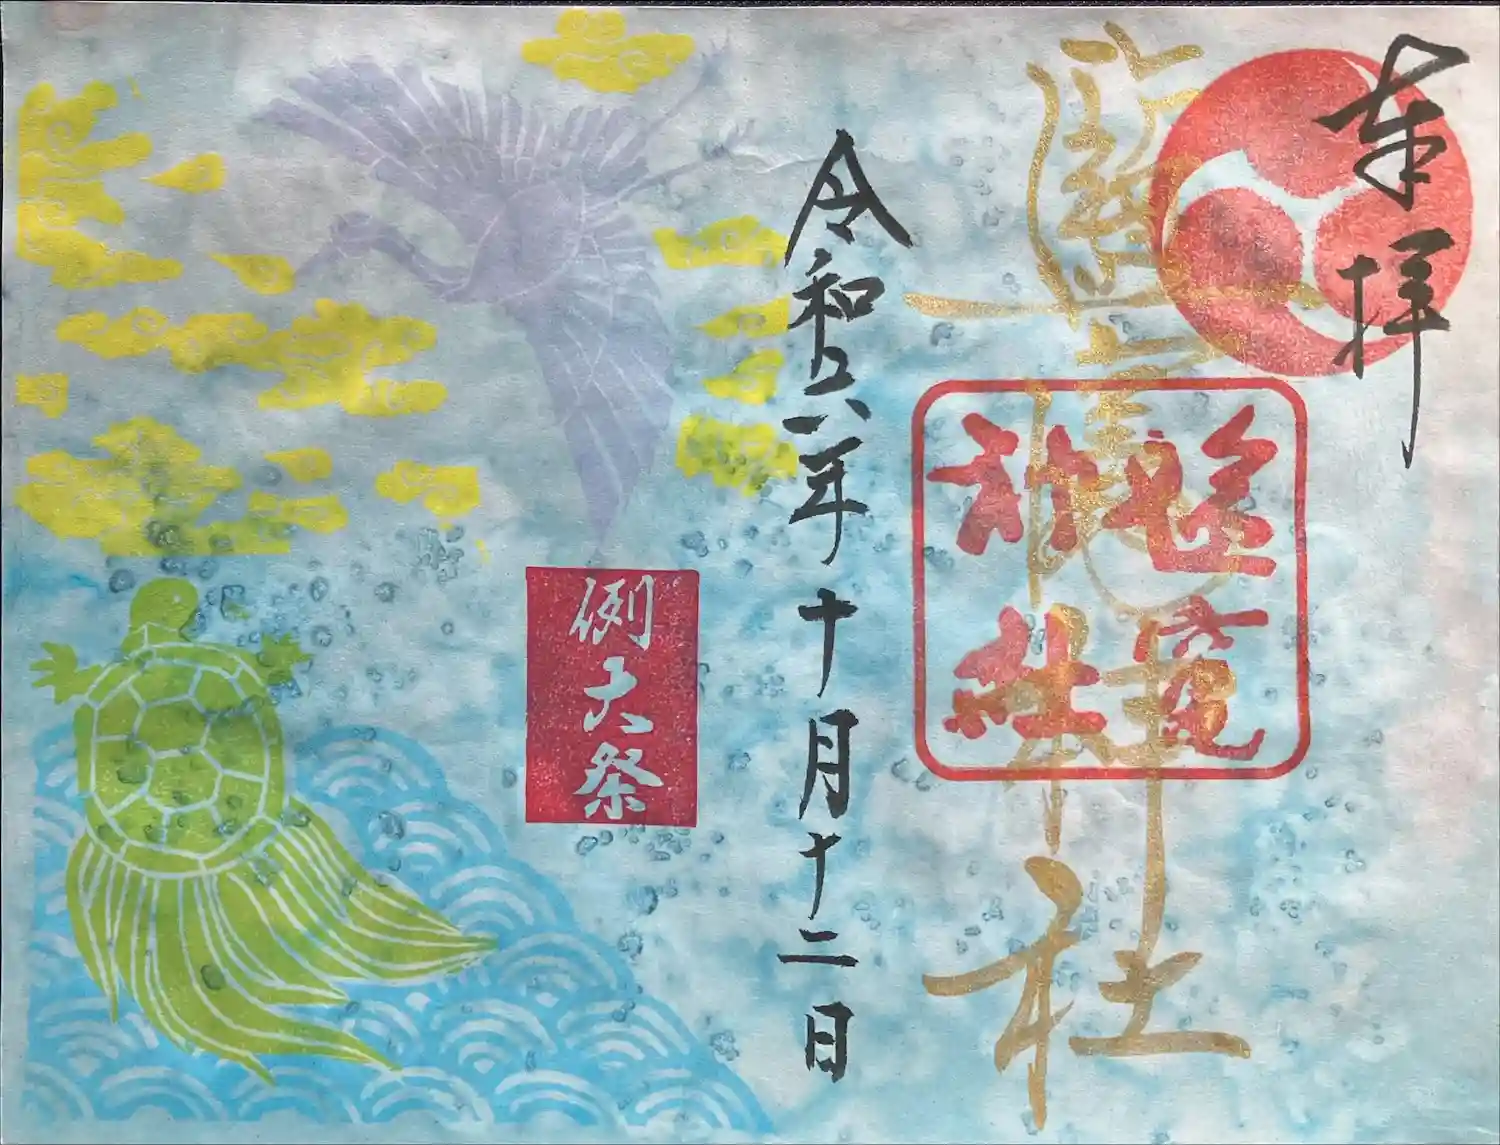 奉拝
神社
神社
令和六年十月十二日
例大祭